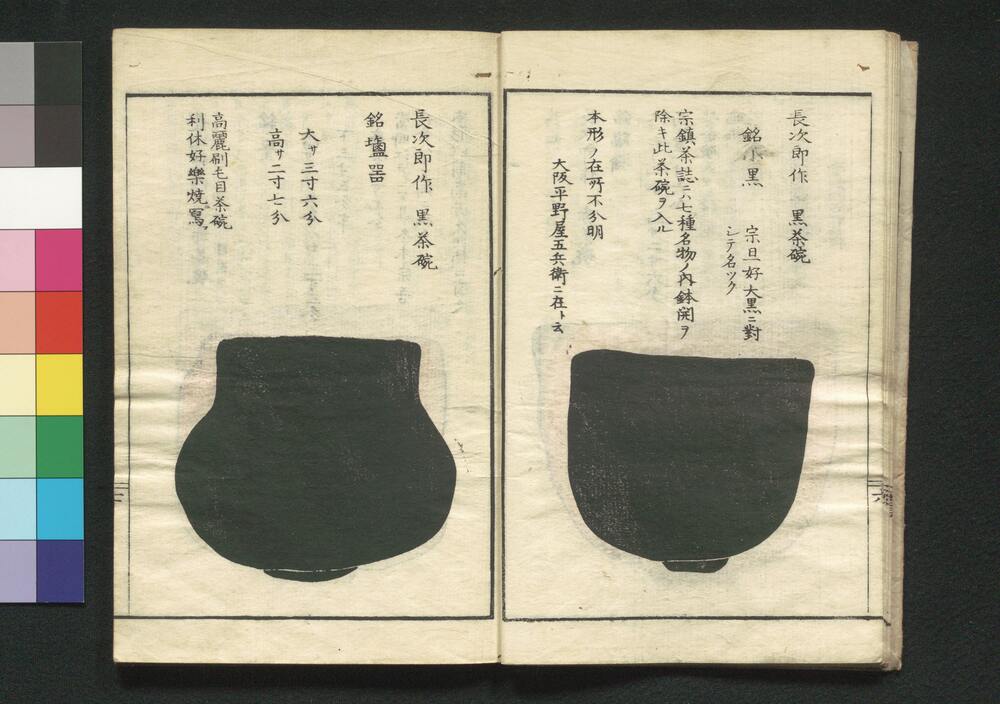 長次郎作 黒茶碗
銘小黒 宗旦好大黒ニ對
シテ名ツク
宗鎮茶誌ニハ七種名物ノ内鉢開ヲ
除キ此茶碗ヲ入ル
本形ノ在所不分明
大阪平野屋五兵衛ニ在ト云
長次郎作 黒茶碗
銘塩噐
大サ三寸六分
高サ二寸七分
高麗刷毛目茶碗
利休好樂焼寫